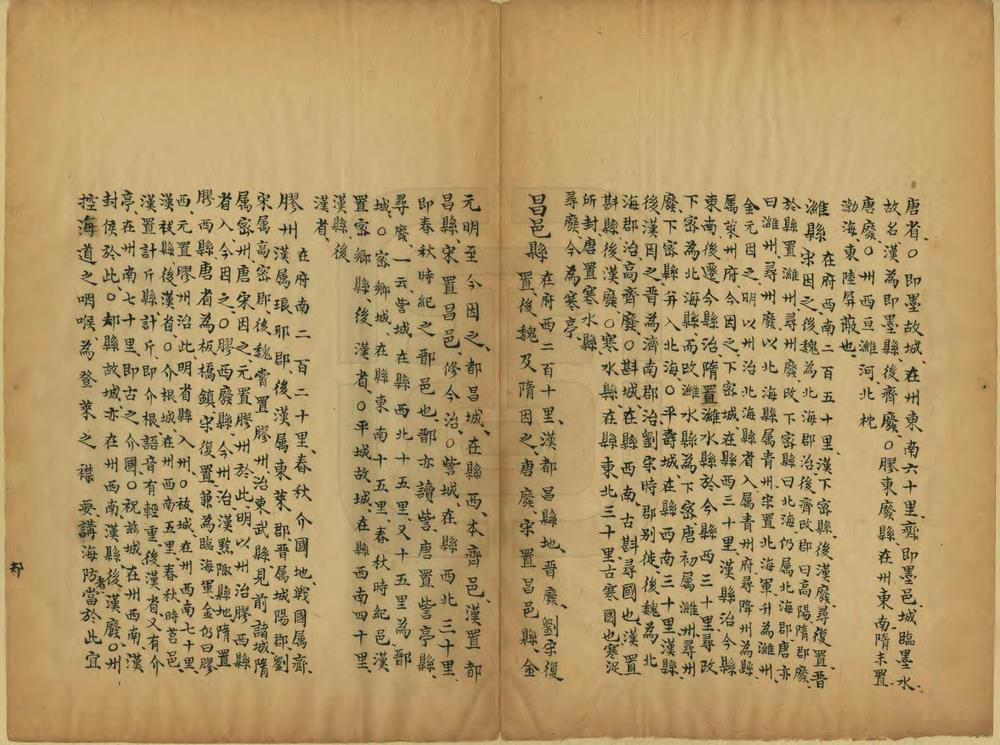 唐省○即墨故城、在州東南六十里、齊即墨邑、城臨墨水、
故名、漢為即墨縣、後齊廢○膠東廢縣在州東南隋末置、
唐廢○州西亘濰河、北枕
渤海、東陸屏蔽也、
濰縣 在府西南二百五十里、漢下密縣、後漢廢、尋復置、晉
因之、後魏為北海郡治、後齊改郡曰高陽、隋郡廢、
於縣置濰州、尋州廢、改下密縣曰北海、仍属北海郡、唐亦
曰濰州、尋州廢、以北海縣属青州、宋置北海軍、升為濰州、
金元因之、明以州治北海縣省入、属青州府、尋降州為縣、
属萊州府、今因之、下密城、在縣西三十里、漢縣治今縣
東南、後遷今縣治、隋置濰水縣於今縣西三十里、尋改
下密為北海縣、而改濰水縣為下密、唐初属濰州、尋州
廢、下密縣并入北海○平壽城、在縣西南三十里、漢縣、
後漢因之、晉為濟南郡治、劉宋時郡别徙、後魏為北
海郡治、高齊廢○斟城、在縣西南、古斟尋國也、漢置
斟縣、後漢廢○寒水縣在縣東北三十里、古寒國也、寒浞
所封、唐置寒水縣、
尋廢、今為寒亭、
昌邑縣 在府西二百十里、漢都昌縣地、晉廢、劉宋復
置、後魏及隋因之、唐廢、宋置昌邑縣、金
元明至今因之、都昌城、在縣西、本齊邑、漢置都
昌縣、宋置昌邑、修今治○訾城在縣西北三十里、
即春秋時紀之鄑邑也、鄑亦讀訾、唐置訾亭縣、
尋廢、一云訾城在縣西北十五里、又十五里為鄑
城、○密鄉城、在縣東南十五里、春秋時紀邑、漢
置密鄉縣、後漢省、○平城故城、在縣西南四十里、
漢縣、後
漢省、
膠州 在府南二百二十里、春秋介國地、戰國属齊、
漢属琅邪郡、後漢属東萊郡、晉属城陽郡、劉
宋属高密郡、後魏嘗置膠州、治東武縣、見前諸城、隋
属密州、唐宋因之、元置膠州於此、明以州治膠西縣
省入、今因之、○膠西廢縣、今州治、漢黔陬縣地、隋置
膠西縣、唐省為板橋鎮、宋復置、兼為臨海軍、金仍曰膠
西、元置膠州治此、明省縣入州、○祓城在州西南七十里、
漢祓縣、後漢省、○介根城在州西南五里、春秋時莒邑、
漢置計斤縣、計斤即介根、語音有輕重、後漢省、又有介
亭、在州南七十里、即古之介國○祝茲城、在州西南、漢
封侯於此○邞縣故城亦在州西南、漢縣、後漢廢、○州
控海道之咽喉、為登萊之襟要、講海防者當於此宜